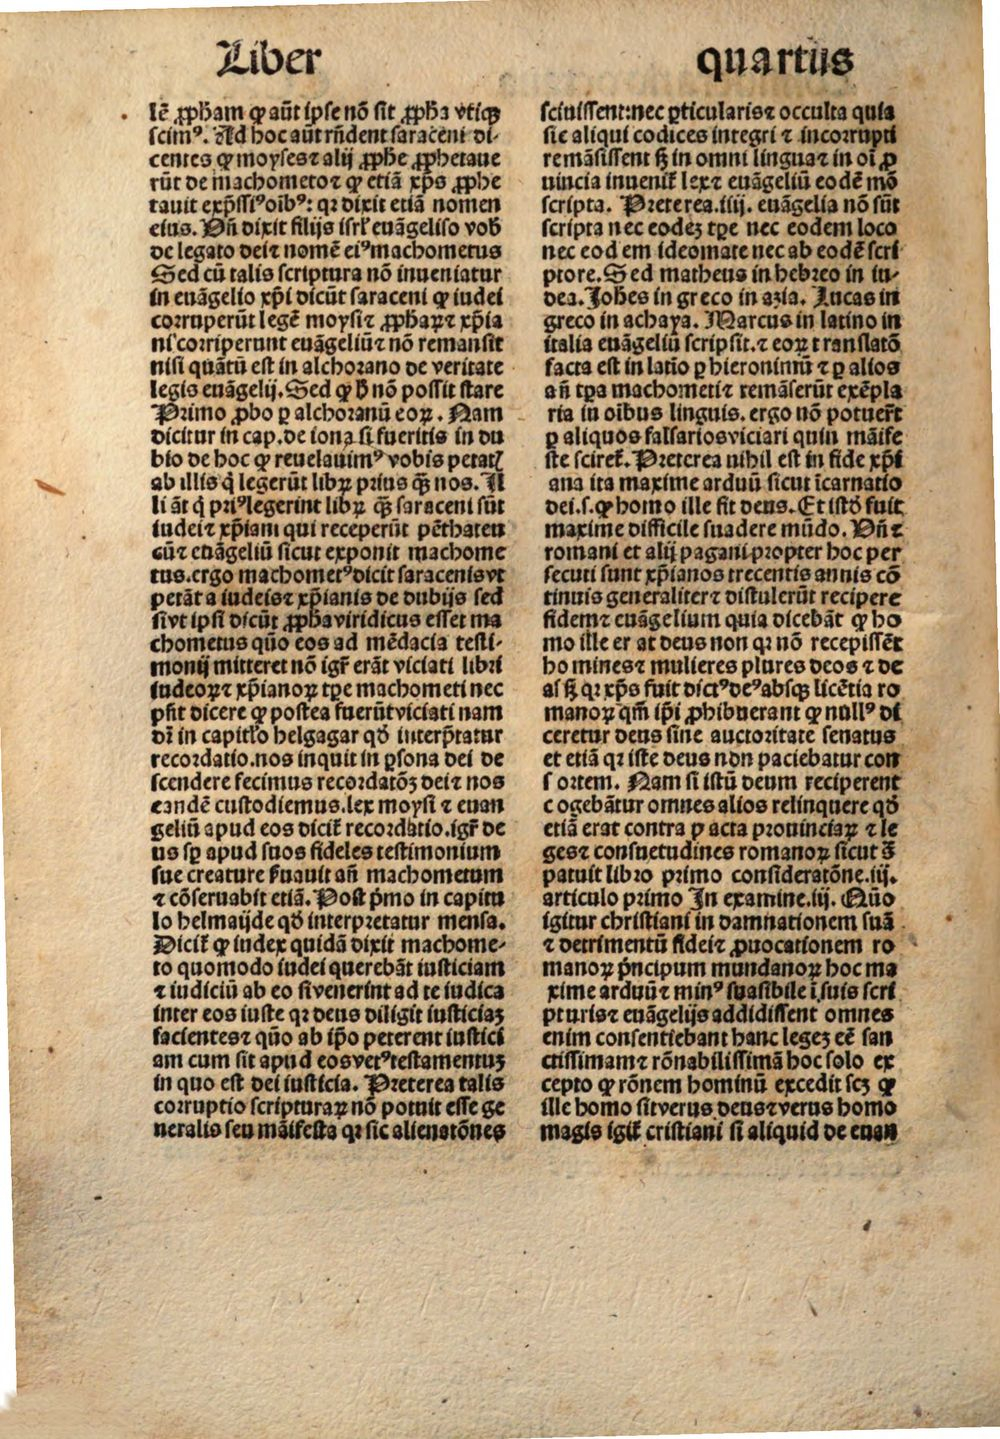 Liber quartus
lē ꝓpham ꝙ aūt ipse nō sit ꝓpha vtiqꝫ
scimꝰ. Ad hoc aūt rn̄dent saraceni di-
centes ꝙ moyses ⁊ alij ꝓphe ꝓphetaue
rūt de machometo ⁊ ꝙ etiā xp̄s ꝓphe
tauit exp̄ssiꝰ oībꝰ: qꝛ dixit etiā nomen
eius. Vn̄ dixit filijs isrl' euāgeliso vob̄
de legato dei ⁊ nomē eiꝰ machometus
Sed cū talis scriptura nō inueniatur
in euāgelio xp̄i dicūt saraceni ꝙ iudei
corruperūt legē moysi ⁊ ꝓphaꝝ ⁊ xp̄ia
ni corriperunt euāgeliū ⁊ nō remansit
nisi quātū est in alchorano de veritate
legis euāgelij. Sed ꝙ h̄ nō possit stare
Primo ꝓbo ꝑ alchoranū eoꝝ. Nam
dicitur in cap. de iona si fueritis in du
bio de hoc ꝙ reuelauimꝰ vobis petatꝭ
ab illis q̄ legerūt libꝝ prius qꝫ̄ nos. Il
li āt q̄ priꝰ legerint libꝝ qꝫ̄ saraceni sūt
iudei ⁊ xp̄iani qui receperūt pēthateu
cū ⁊ euāgeliū sicut exponit machome
tus. ergo machometꝰ dicit saracenis vt
petāt a iudeis ⁊ xp̄ianis de dubijs sed
si vt ipsi dicūt ꝓpha viridicus esset ma
chometus quō eos ad mēdacia testi-
monij mitteret nō igr̄ erāt viciati libri
iudeoꝝ ⁊ xp̄ianoꝝ tꝑe machometi nec
pn̄t dicere ꝙ postea fuerūt viciati nam
dr̄ in capitl'o helgagar qd̄ interp̄tatur
recordatio. nos inquit in ꝑsona dei de
scendere fecimus recordatōꝫ dei ⁊ nos
eandē custodiemus. lex moysi ⁊ euan
geliū apud eos dicit̄ recordatio. igr̄ de
us sꝑ apud suos fideles testimonium
sue creature s̄uauit an̄ machometum
⁊ cōseruabit etiā. Post p̄mo in capitu
lo helmaijde qd̄ interpretatur mensa.
Dicit̄ ꝙ iudex quidā dixit machome-
to quomodo iudei querebāt iusticiam
⁊ iudiciū ab eo si venerint ad te iudica
inter eos iuste qꝛ deus diligit iusticiaꝫ
facientes ⁊ quō ab ip̄o peterent iustici
am cum sit apud eos vetꝰ testamentuꝫ
in quo est dei iusticia. Preterea talis
corruptio scripturaꝝ nō potuit esse ge
neralis seu māifesta qꝛ sic alienatōnes
sciuissent: nec ꝑticularis ⁊ occulta quia
sic aliqui codices integri ⁊ incorrupti
remāsissent sꝫ in omni lingua ⁊ in oī ꝓ
uincia inuenit̄ lex ⁊ euāgeliū eodē mō
scripta. Preterea .iiij. euāgelia nō sūt
scripta nec eodeꝫ tꝑe nec eodem loco
nec eod em ideomate nec ab eodē scri
ptore. Sed matheus in hebreo in iu-
dea. Johēs in greco in azia. Lucas in
greco in achaya. Marcus in latino in
italia euāgeliū scripsit. ⁊ eoꝝ translatō
facta est in latio ꝑ hieronimū ⁊ ꝑ alios
an̄ tꝑa machometi ⁊ remāserūt exēpla
ria in oībus linguis. ergo nō potuer̄t
ꝑ aliquos falsarios viciari quin māife
ste sciret̄. Preterea nihil est in fide xp̄i
ana ita maxime arduū sicut īcarnatio
dei. s. ꝙ homo ille sit deus. Et istd̄ fuit
maxime difficile suadere mūdo. Vn̄ ⁊
romani et alij pagani propter hoc per
secuti sunt xp̄ianos trecentis annis cō
tinuis generaliter ⁊ distulerūt recipere
fidem ⁊ euāgelium quia dicebāt ꝙ ho
mo ille er at deus non qꝛ nō recepissēt
ho mines ⁊ mulieres plures deos ⁊ de
as sꝫ qꝛ xp̄s fuit dictꝰ deꝰ absqꝫ licētia ro
manoꝝ qm̄ ip̄i ꝓhibuerant ꝙ nullꝰ di
ceretur deus sine auctoritate senatus
et etiā qꝛ iste deus non paciebatur con
s ortem. Nam si istū deum reciperent
c ogebātur omnes alios relinquere qd̄
etiā erat contra pacta prouinciaꝝ ⁊ le
ges ⁊ consuetudines romanoꝝ sicut
patuit libro primo consideratōne .iij.
articulo primo In examine .iij. Quō
igitur christiani in damnationem suā
⁊ detrimentū fidei ⁊ ꝓuocationem ro
manoꝝ p̄ncipum mundanoꝝ hoc ma
xime arduū ⁊ minꝰ suasibile ī suis scri
pturis ⁊ euāgelijs addidissent omnes
enim consentiebant hanc legeꝫ eē san
ctissimam ⁊ rōnabilissimā hoc solo ex
cepto ꝙ rōnem hominū excedit scꝫ ꝙ
ille homo sit verus deus ⁊ verus homo
magis igit̄ cristiani si aliquid de euan